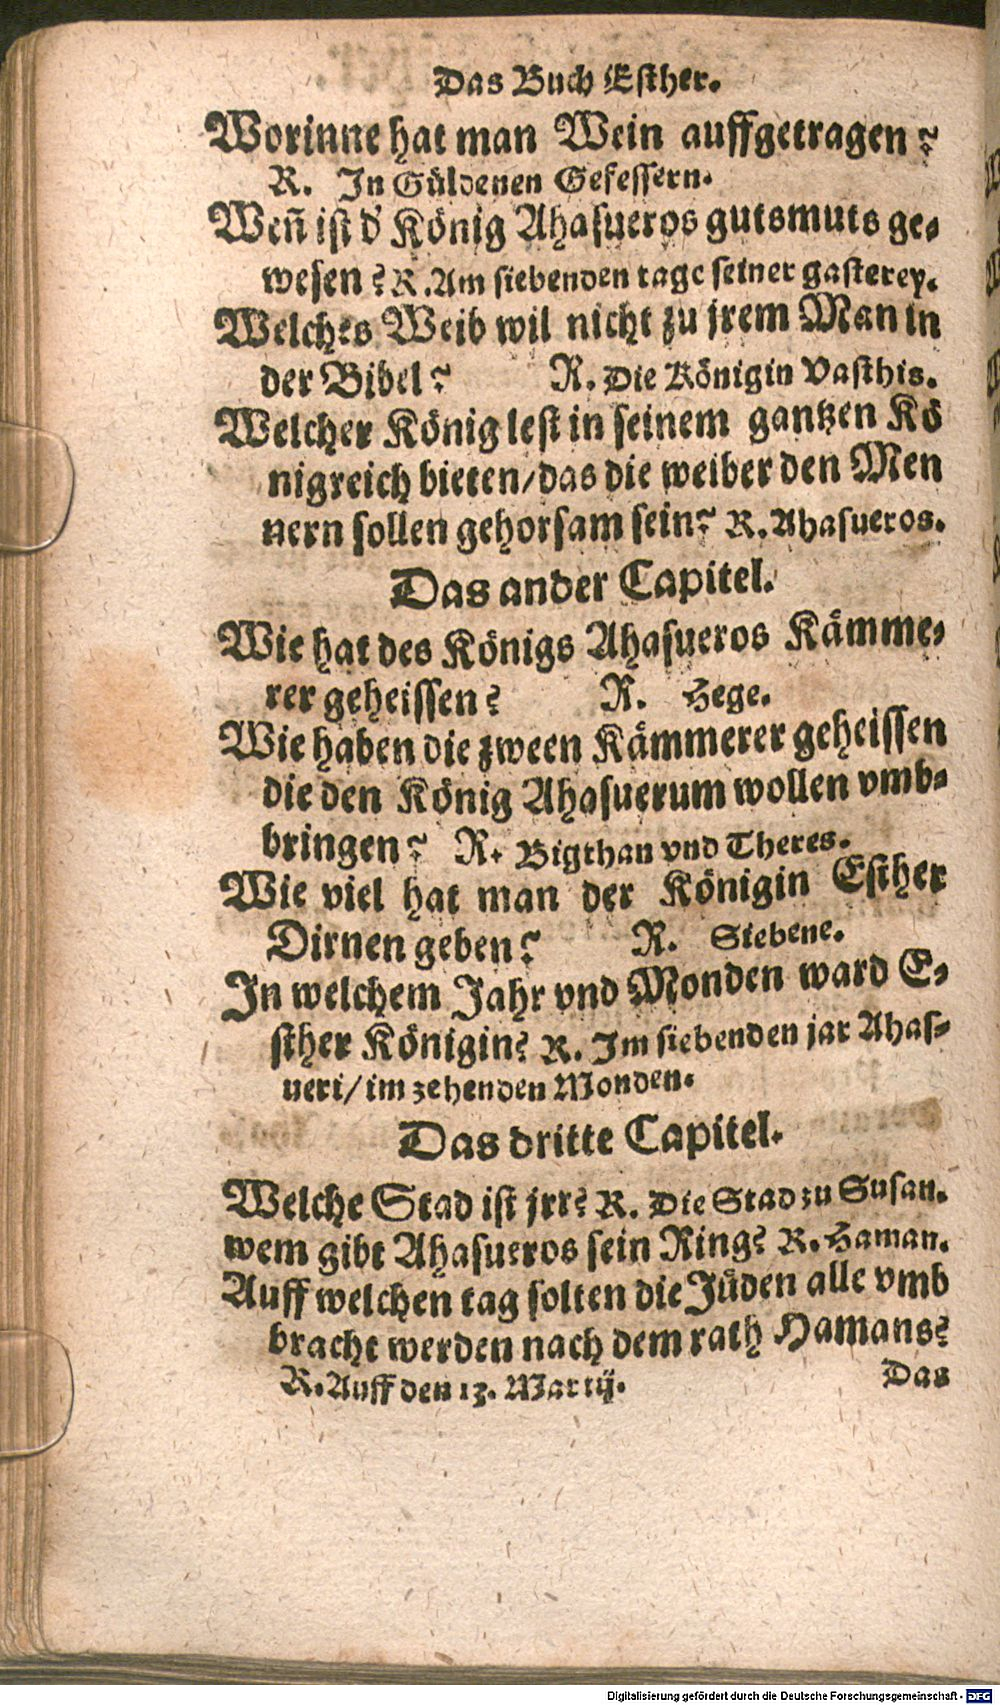 Das Buch Esther.
Worinne hat man Wein auffgetragen?
R. In Güldenen Gefessern.
Weñ ist d' König Ahasueros gutsmuts ge-
wesen? R. Am siebenden tage seiner gasterey.
Welches Weib wil nicht zu jrem Man in
der Bibel? R. Die Königin Vasthis.
Welcher König lest in seinem gantzen Kö
nigreich bieten/das die weiber den Men
nern sollen gehorsam sein? R. Ahasueros.
Das ander Capitel.
Wie hat des Königs Ahasueros Kämme-
rer geheissen? R. Hege.
Wie haben die zween Kämmerer geheissen
die den König Ahasuerum wollen vmb-
bringen? R. Bigthan vnd Theres.
Wie viel hat man der Königin Esther
Dirnen geben? R. Siebene.
In welchem Jahr vnd Monden ward E-
sther Königin? R. Im siebenden jar Ahas-
ueri/im zehenden Monden.
Das dritte Capitel.
Welche Stad ist jrr? R. Die Stad zu Susan.
wem gibt Ahasueros sein Ring? R. Haman.
Auff welchen tag solten die Jüden alle vmb
bracht werden nach dem rath Hamans?
R. Auff den 13. Martij.
Das
Digitalisierung gefördert durch die Deutsche Forschungsgemeinschaft - DFG